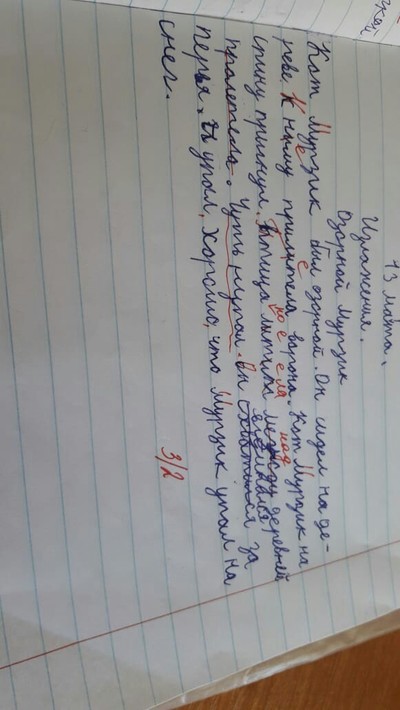 13 марта.
Изложения.
Озорной Мурзик
Кот Мурзик был озорной. Он сидел на де-
реве. К ныму прилитела ворона. Кот Мурзик на
спину прыгнул. Птица
пролетела. Чуть нупал. Он схватился за
перья. и упал. Хорошо, что Мурзик упал на
снег.
3/2